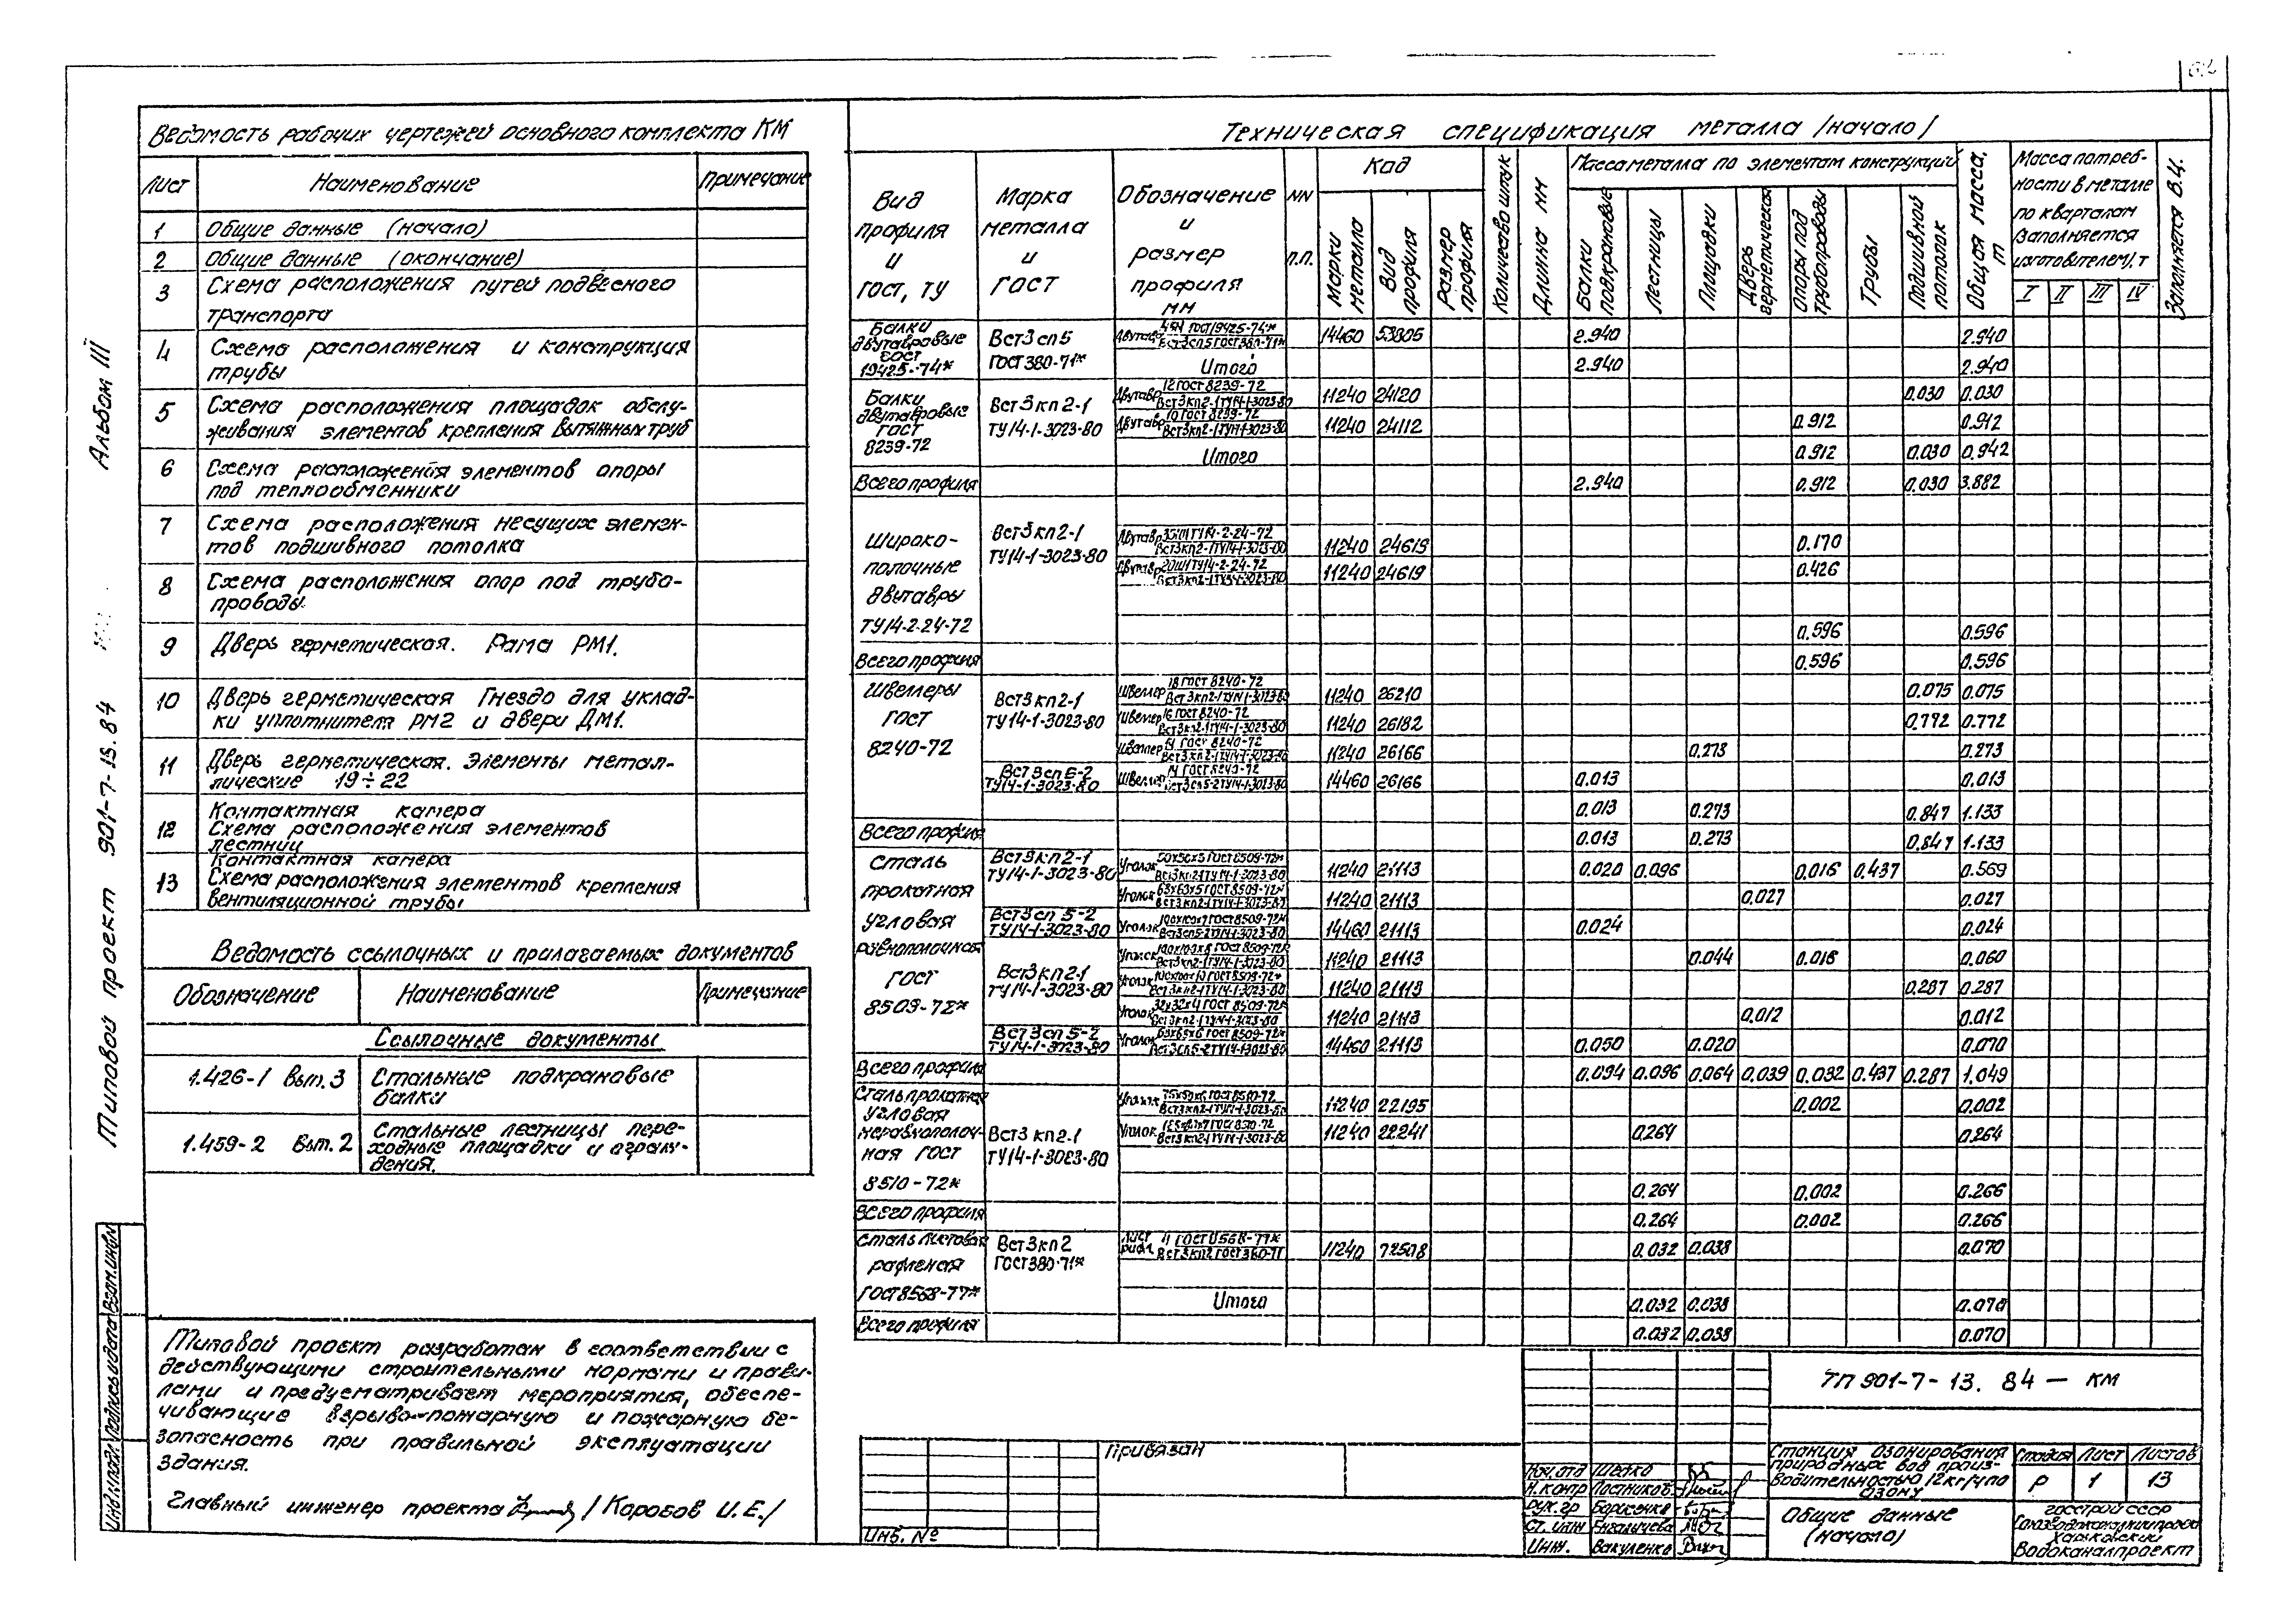 62
Альбом III
Типовой проект 901-7-13.84
Ведомость рабочих чертежей основного комплекта КМ
Лист Наименование Примечание
1 Общие данные (начало)
2 Общие данные (окончание)
3 Схема расположения путей подвесного
транспорта
4 Схема расположения и конструкция
трубы
5 Схема расположения площадок обслу-
живания элементов крепления вытяжных труб
6 Схема расположения элементов опоры
под теплообменники
7 Схема расположения несущих элемен-
тов подшивного потолка
8 Схема расположения опор под трубо-
проводы.
9 Дверь герметическая. Рама РМ1.
10 Дверь герметическая Гнездо для уклад-
ки уплотнителя РМ2 и двери ДМ1.
11 Дверь герметическая. Элементы метал-
лические 19÷22
12 Контактная камера
Схема расположения элементов
лестниц
13 Контактная камера
Схема расположения элементов крепления
вентиляционной трубы
Ведомость ссылочных и прилагаемых документов
Обозначение Наименование Примечание
Ссылочные документы
1.426-1 Вып.3 Стальные подкрановые
балки
1.459-2 Вып.2 Стальные лестницы пере-
ходные площадки и ограж-
дения.
Типовой проект разработан в соответствии с
действующими строительными нормами и прави-
лами и предусматривает мероприятия, обеспе-
чивающие взрыво-пожарную и пожарную бе-
зопасность при правильной эксплуатации
здания.
Главный инженер проекта /Коробов И.Е./
Инв.№ подл. Подпись и дата Взам.инв.№
Техническая спецификация металла /начало/
Вид профиля и ГОСТ, ТУ
Марка металла и ГОСТ
Обозначение и размер профиля мм
NN п.п.
Код
Марки металла Вид профиля Размер профиля
Количество штук
Длина мм
Масса металла по элементам конструкций
Балки подкрановые Лестницы Площадки Дверь герметическая Опоры под трубопроводы Трубы Подшивной потолок
Общая масса, т
Масса потреб-
ности в металле
по кварталам
(Заполняется
изготовителем), т
I II III IV
Заполняется В.Ц.
Балки двутавровые ГОСТ 19425-74* ВСт3сп5 ГОСТ 380-71* Двутавр 45М ГОСТ 19425-74* ВСт3сп5 ГОСТ 380-71* 14460 53805 2.940 2.940
Итого 2.940 2.940
Балки двутавровые ГОСТ 8239-72 ВСт3кп2-1 ТУ14-1-3023-80 Двутавр 12 ГОСТ 8239-72 ВСт3кп2-1 ТУ14-1-3023-80 11240 24120 0.030 0.030
Двутавр 10 ГОСТ 8239-72 ВСт3кп2-1 ТУ14-1-3023-80 11240 24112 0.912 0.912
Итого 0.912 0.030 0.942
Всего профиля 2.940 0.912 0.030 3.882
Широко-полочные двутавры ТУ14-2-24-72 ВСт3кп2-1 ТУ14-1-3023-80 Двутавр 35Ш1 ТУ14-2-24-72 ВСт3кп2-1 ТУ14-1-3023-80 11240 24619 0.170
Двутавр 20Ш1 ТУ14-2-24-72 ВСт3кп2-1 ТУ14-1-3023-80 11240 24619 0.426
0.596 0.596
Всего профиля 0.596 0.596
Швеллеры ГОСТ 8240-72 ВСт3кп2-1 ТУ14-1-3023-80 Швеллер 18 ГОСТ 8240-72 ВСт3кп2-1 ТУ14-1-3023-80 11240 26210 0.075 0.075
Швеллер 16 ГОСТ 8240-72 ВСт3кп2-1 ТУ14-1-3023-80 11240 26182 0.772 0.772
Швеллер 14 ГОСТ 8240-72 ВСт3кп2-1 ТУ14-1-3023-80 11240 26166 0.273 0.273
ВСт3сп5-2 ТУ14-1-3023-80 Швеллер 14 ГОСТ 8240-72 ВСт3сп5-2 ТУ14-1-3023-80 14460 26166 0.013 0.013
0.013 0.273 0.847 1.133
Всего профиля 0.013 0.273 0.847 1.133
Сталь прокатная угловая равнополочная ГОСТ 8509-72* ВСт3кп2-1 ТУ14-1-3023-80 Уголок 50х50х5 ГОСТ 8509-72* ВСт3кп2-1 ТУ14-1-3023-80 11240 21113 0.020 0.096 0.016 0.437 0.569
Уголок 63х63х5 ГОСТ 8509-72* ВСт3кп2-1 ТУ14-1-3023-80 11240 21113 0.027 0.027
ВСт3сп5-2 ТУ14-1-3023-80 Уголок 100х100х7 ГОСТ 8509-72* ВСт3сп5-2 ТУ14-1-3023-80 14460 21113 0.024 0.024
ВСт3кп2-1 ТУ14-1-3023-80 Уголок 100х100х8 ГОСТ 8509-72* ВСт3кп2-1 ТУ14-1-3023-80 11240 21113 0.044 0.016 0.060
Уголок 100х100х10 ГОСТ 8509-72* ВСт3кп2-1 ТУ14-1-3023-80 11240 21113 0.287 0.287
Уголок 32х32х4 ГОСТ 8509-72* ВСт3кп2-1 ТУ14-1-3023-80 11240 21113 0.012 0.012
ВСт3сп5-2 ТУ14-1-3023-80 Уголок 63х63х6 ГОСТ 8509-72* ВСт3сп5-2 ТУ14-1-3023-80 14460 21113 0.050 0.020 0.070
Всего профиля 0.094 0.096 0.064 0.039 0.032 0.437 0.287 1.049
Сталь прокатная угловая неравнополоч-ная ГОСТ 8510-72* ВСт3кп2-1 ТУ14-1-3023-80 Уголок 75х50х6 ГОСТ 8510-72 ВСт3кп2-1 ТУ14-1-3023-80 11240 22195 0.002 0.002
Уголок ГОСТ 8510-72 ВСт3кп2-1 ТУ14-1-3023-80 11240 22241 0.264 0.264
0.264 0.002 0.266
Всего профиля 0.264 0.002 0.266
Сталь листовая рифленая ГОСТ 8568-77* ВСт3кп2 ГОСТ 380-71* Лист рифл. 4 ГОСТ 8568-77* ВСт3кп2 ГОСТ 380-71 11240 72508 0.032 0.038 0.070
Итого 0.032 0.038 0.070
Всего профиля 0.032 0.038 0.070
Привязан
Инв. №
ТП 901-7-13.84 — КМ
Нач.отд Шейко
Н.контр Постников
Рук.гр Борисенко
Ст. инж Енгалычева
Инж. Вакуленко
Станция озонирования
природных вод произ-
водительностью 12кг/ч по
озону
Стадия Лист Листов
Р 1 13
Общие данные
(начало)
Госстрой СССР
Союзводоканалниипроект
Харьковский
Водоканалпроект